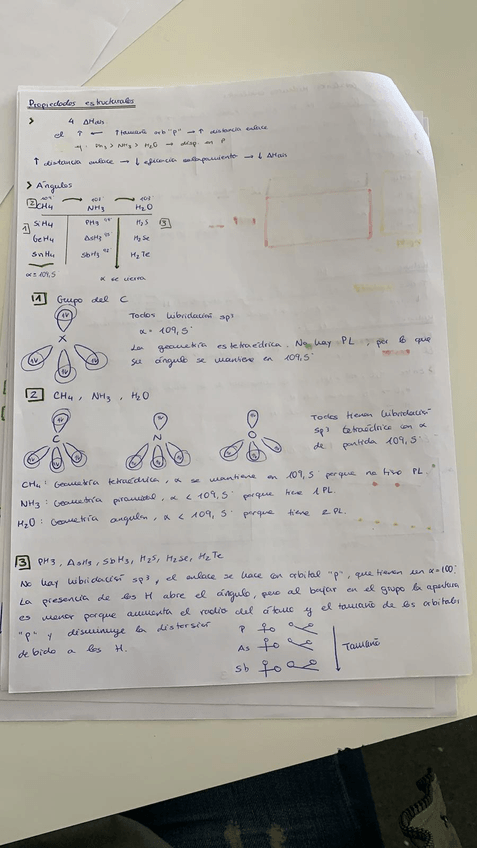 Propiedades estructurales
> 4 ΔHais
el ↑ ← ↑tamaño orb "p" → ↑ distancia enlace
PH3 > NH3 > H2O → disp. en P
↑ distancia enlace → ↓ eficacia enlazamiento → ↓ ΔHais
> Ángulos
2 CH4 NH3 H2O
1 SiH4 PH3 H2S 3
GeH4 AsH3 H2Se
SnH4 SbH3 H2Te
α = 109,5 α se cierra
1 Grupo del C
Todos hibridación sp3
X
α = 109,5°
La geometría es tetraédrica. No hay PL, por lo que
su ángulo se mantiene en 109,5°
2 CH4, NH3, H2O
Todos tienen hibridación
sp3 tetraédrico con α
de partida 109,5°
C N O
CH4: Geometría tetraédrica, α se mantiene en 109,5° porque no tiene PL.
NH3: Geometría piramidal, α < 109,5° porque tiene 1 PL.
H2O: Geometría angular, α < 109,5° porque tiene 2 PL.
3 PH3, AsH3, SbH3, H2S, H2Se, H2Te
No hay hibridación sp3, el enlace se hace con orbital "p", que tienen un α=100°
La presencia de los H abre el ángulo, pero al bajar en el grupo la apertura
es menor porque aumenta el radio del átomo y el tamaño de los orbitales
"p" y disminuye la distorsión
debido a los H.
P
As Tamaño
Sb